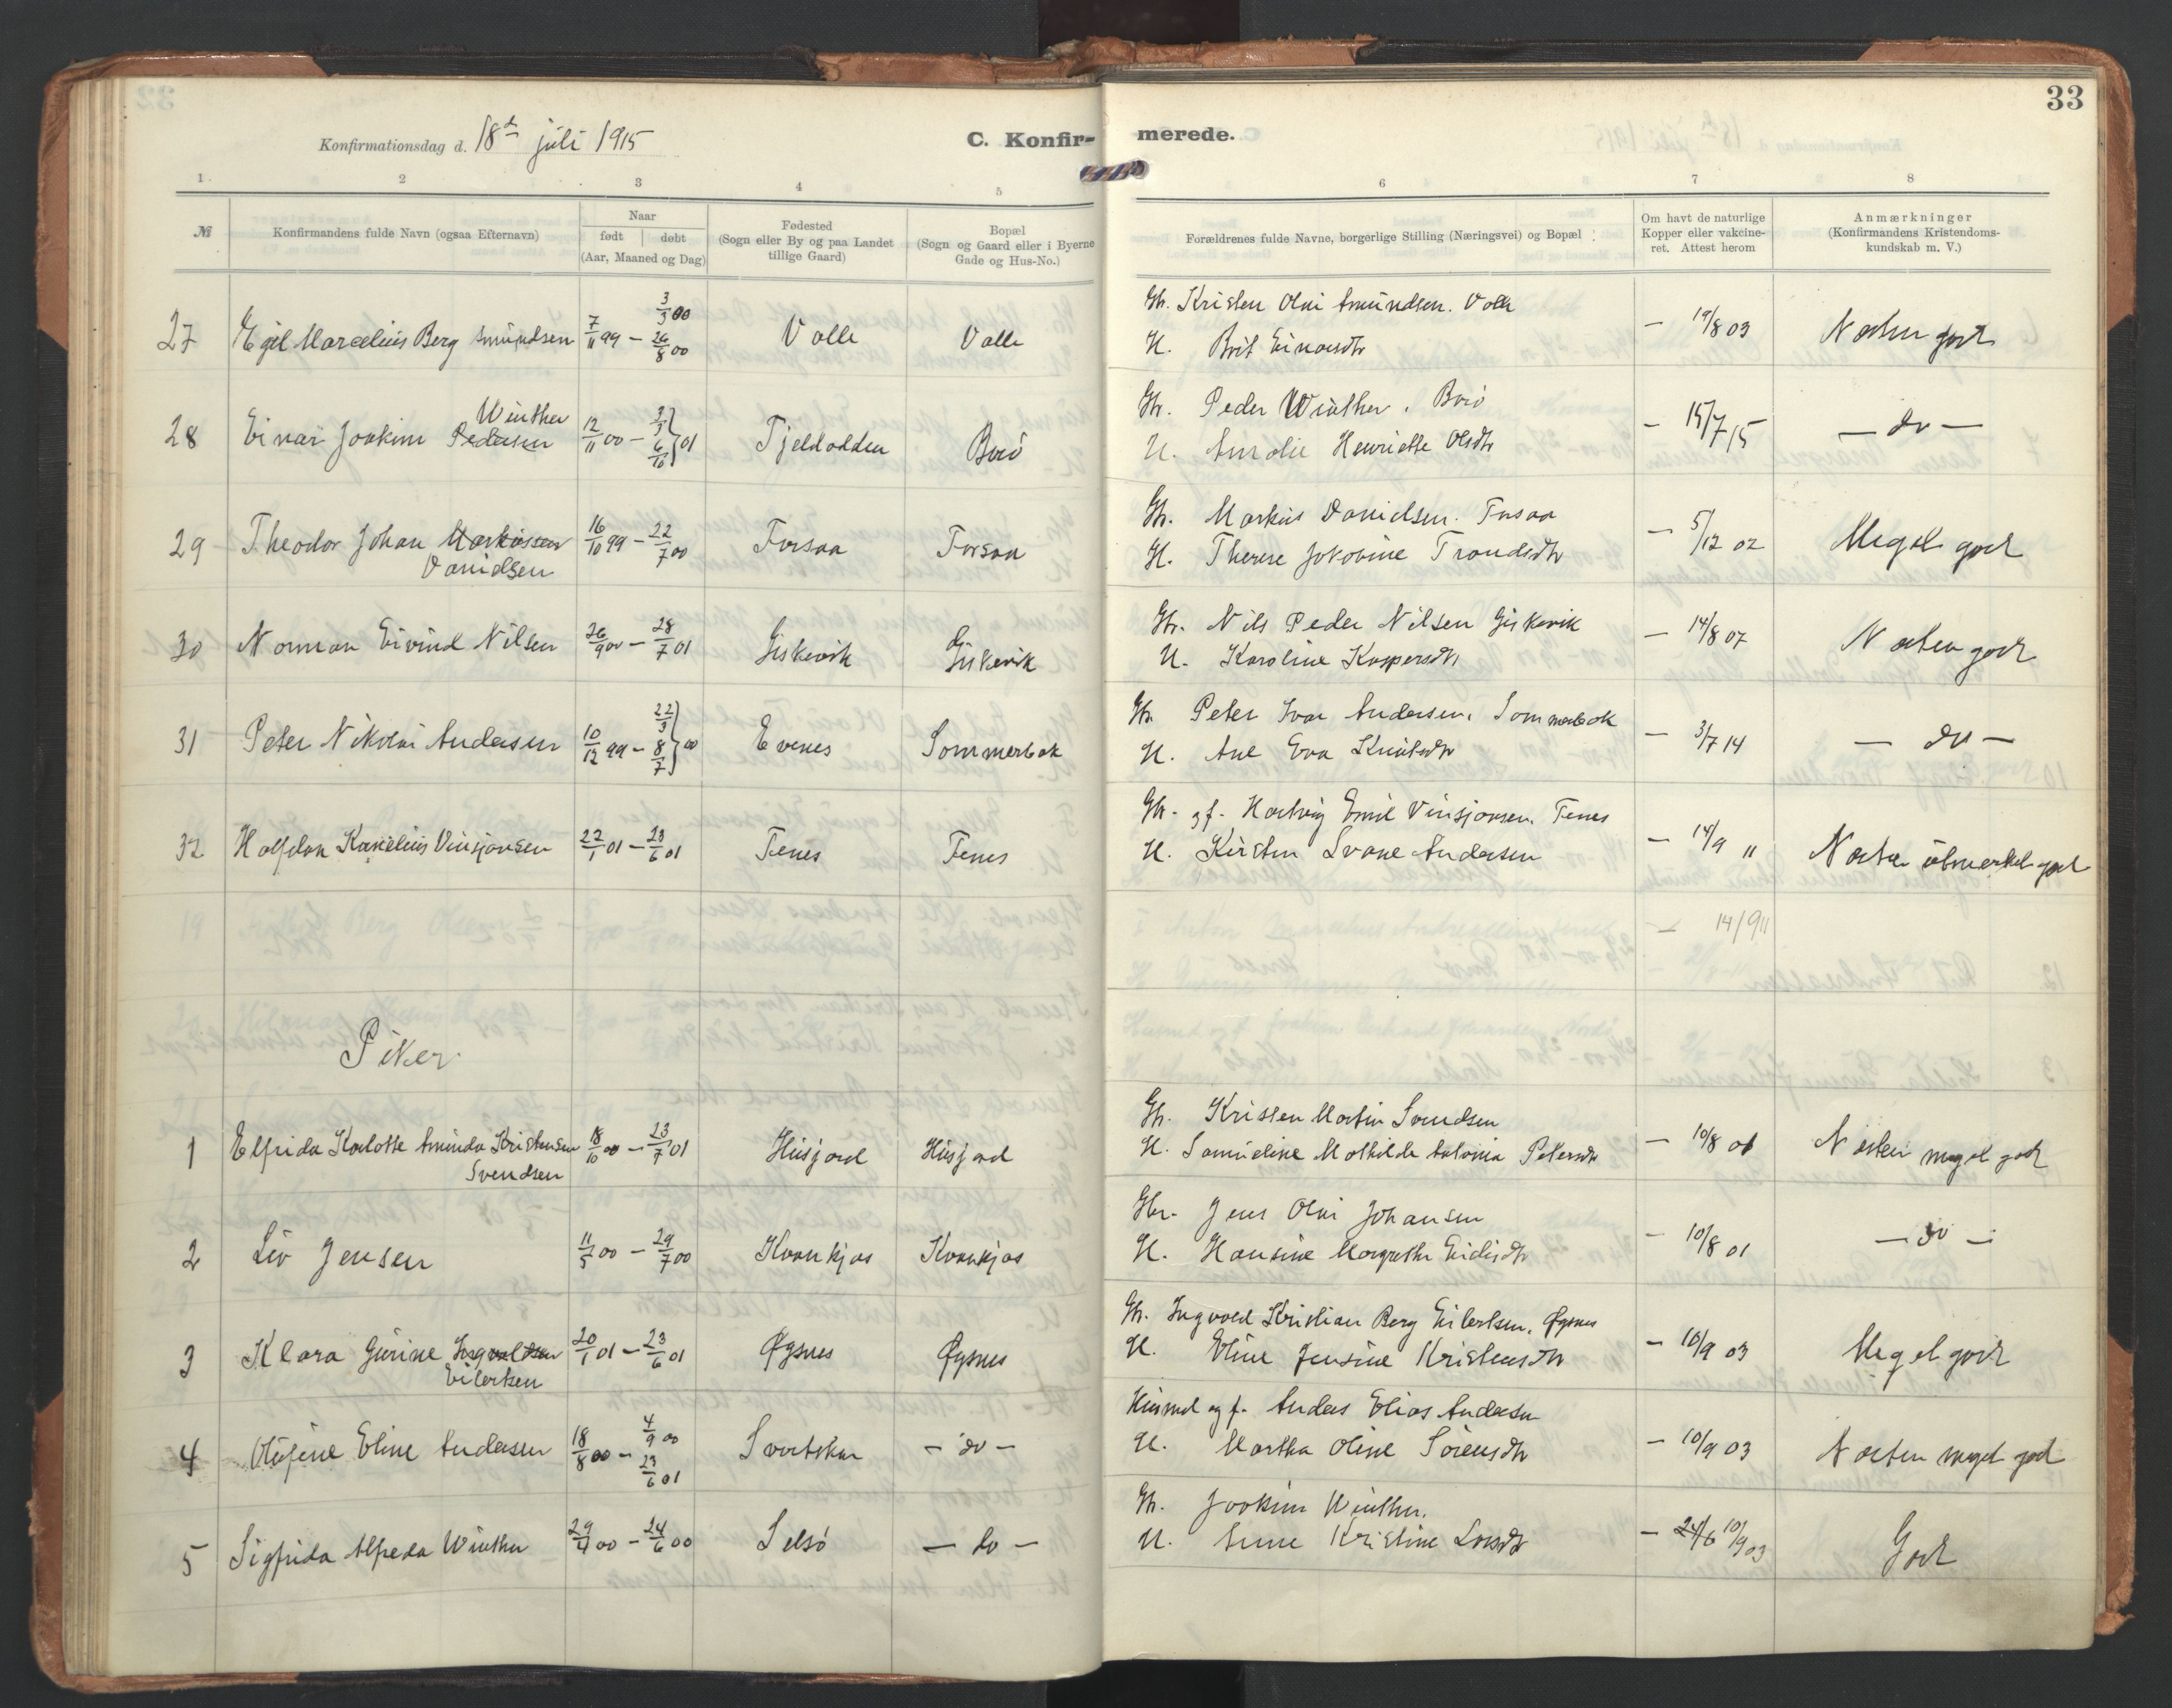 33
Konfirmationsdag d. 18de juli 1915
C. Konfir-
merede.
1. 2 3 4 5 6 7 8
№
Konfirmandens fulde Navn (ogsaa Efternavn)
Naar
født døbt
(Aar, Maaned og Dag)
Fødested
(Sogn eller By og paa Landet
tillige Gaard)
Bopæl
(Sogn og Gaard eller i Byerne
Gade og Hus-No.)
Forældrenes fulde Navne, borgerlige Stilling (Næringsvei) og Bopæl
Om havt de naturlige
Kopper eller vakcine-
ret. Attest herom
Anmærkninger
(Konfirmandens Kristendoms-
kundskab m. V.)
27 Egil Marcelius Berg Amundsen 7/11 99 – 3/3 00 26/8 00 Valle Valle
Gbr. Kristen Olai Amundsen. Valle
H. Brit Einarsdtr – 19/8 03 Næsten godt
28 Einar Joakim Pedersen Winther 12/11 00 – 3/3 6/10 01 Tjeldodden Barø
Gbr. Peder Winther. Barø
H. Amalie Henriette Olsdtr – 15/7 15 — do —
29 Theodor Johan Markussen 16/10 99 – 22/7 00 Forsaa Forsaa
Danielsen
Gbr. Markus Danielsen. Forsaa
H. Therese Jakobine Trondsdtr – 5/12 02 Meget godt
30 Norman Eivind Nilsen 26/9 00 – 28/7 01 Giskevik Giskevik
Gbr. Nils Peder Nilsen Giskevik
H. Karoline Kaspersdtr – 14/8 07 Næsten godt
31 Peter Nikolai Andersen 10/12 99 – 22/3 8/7 00 Evenes Sommerbak
Gbr. Peter Ivar Andersen, Sommerbak
H. Ane Eva Knutsdtr – 3/7 14 — do —
32 Halfdan Kornelius Vinsjansen 22/1 01 – 23/6 01 Tenes Tenes
Gbr. g f. Hartvig Emil Vinsjansen. Tenes
H. Kirsten Svane Andersen – 14/9 11 Næsten utmerket godt
– 14/9 11
Piker
1 Elfrida Karlotte Aminda Kristensen 18/10 00 – 23/7 01 Husjord Husjord
Svendsen
Gbr. Kristen Martin Svendsen
H. Samueline Mathilde Antonia Petersdtr – 10/8 01 Næsten meget godt
2 Liv Jensen 11/5 00 – 29/7 00 Kvankjos Kvankjos
Gbr. Jens Olai Johansen
H. Hansine Margrethe Eidisdtr – 10/8 01 — do —
3 Klara Gurine Ingvaldsen 20/1 01 – 23/6 01 Øgsnes Øgsnes
Eilertsen
Gbr. Ingvald Kristian Berg Eilertsen, Øgsnes
H. Eline Jensine Kristensdtr – 10/9 03 Meget godt
4 Olufine Eline Andersen 18/8 00 – 4/9 00 23/6 01 Svartskar — do —
Husmd og f. Anders Elias Andersen
H. Martha Oline Sörensdtr – 10/9 03 Næsten meget godt
5 Sigfrida Alfreda Winther 29/4 00 – 24/6 00 Selsö — do —
Gbr. Joakim Winther.
H. Anne Kristine Larsdtr – 24/6 10/9 03 Godt